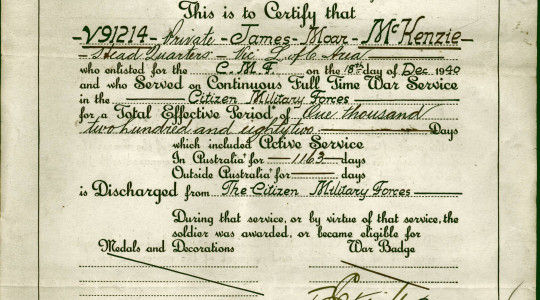 This is to Certify that
-V91214- Private - James - Moar - McKenzie -
- Head Quarters - Vic L of C Area
who enlisted for the C. M. F. on the 18th day of Dec 1940
and who Served on Continuous Full Time War Service
in the Citizen Military Forces
for a Total Effective Period of One thousand
two hundred and eighty two Days
which included Active Service
In Australia for - 1163 - days
Outside Australia for days
is Discharged from The Citizen Military Forces
During that service, or by virtue of that service, the
soldier was awarded, or became eligible for
Medals and Decorations War Badge